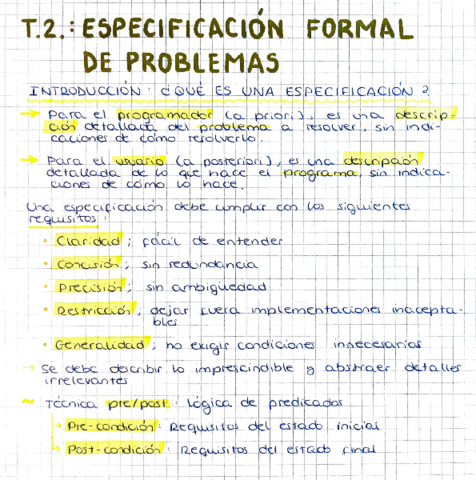 T.2.: ESPECIFICACIÓN FORMAL
DE PROBLEMAS
INTRODUCCIÓN: ¿QUÉ ES UNA ESPECIFICACIÓN?
→ Para el programador (a priori), es una descrip-
ción detallada del problema a resolver, sin indi-
caciones de cómo resolverlo.
→ Para el usuario (a posteriori), es una descripción
detallada de lo que hace el programa, sin indica-
ciones de cómo lo hace.
Una especificación debe cumplir con los siguientes
requisitos:
• Claridad; fácil de entender
• Concisión; sin redundancia
• Precisión; sin ambigüedad
• Restricción; dejar fuera implementaciones inacepta-
bles
• Generalidad; no exigir condiciones innecesarias
→ Se debe describir lo imprescindible y abstraer detalles
irrelevantes
~ Técnica pre/post: lógica de predicados
→ Pre-condición: Requisitos del estado inicial
→ Post-condición: Requisitos del estado final